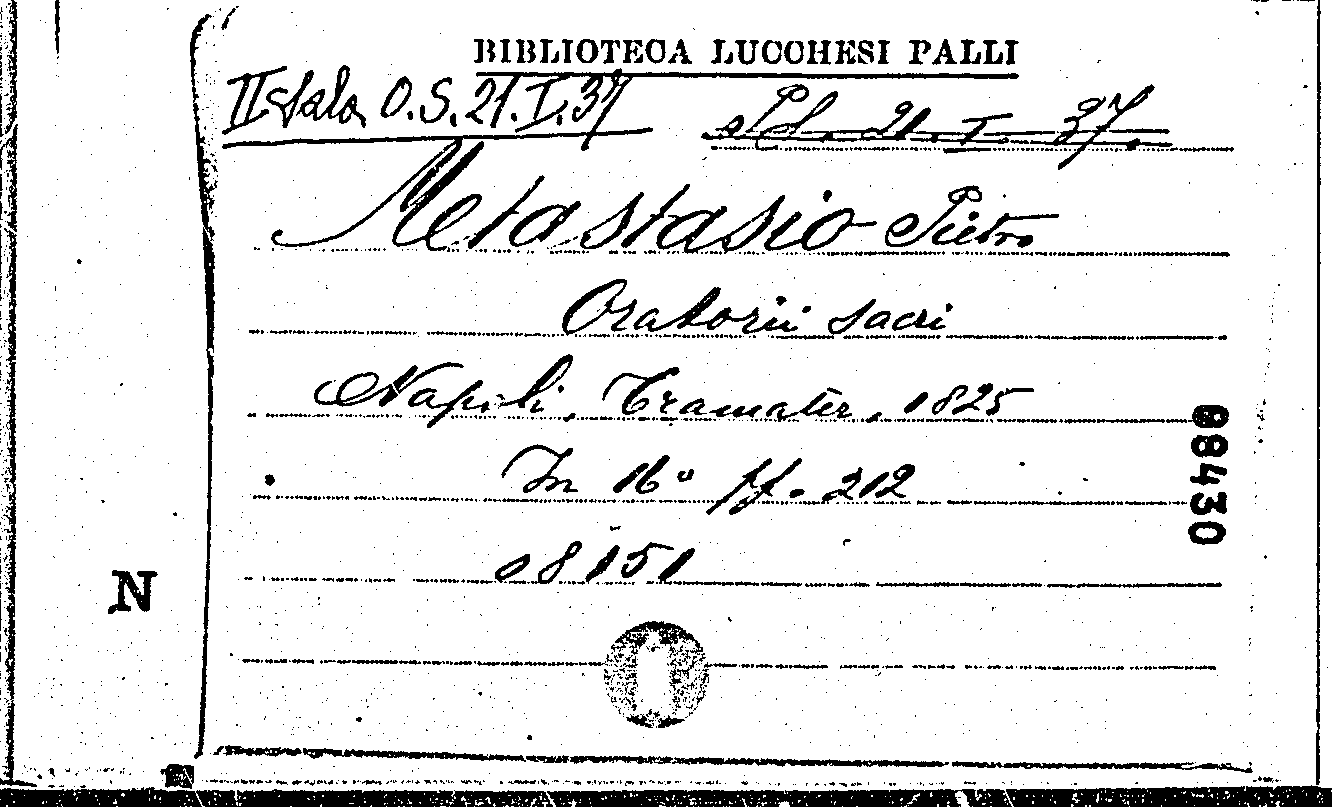 BIBLIOTECA LUCCHESI PALLI
II Sala O.S. 21.I.37 Pel. 21. I. 37.
Metastasio Pietro
Oratorii sacri
Napoli, Tramater, 1825
In 16° pp. 212
08151
98430
N